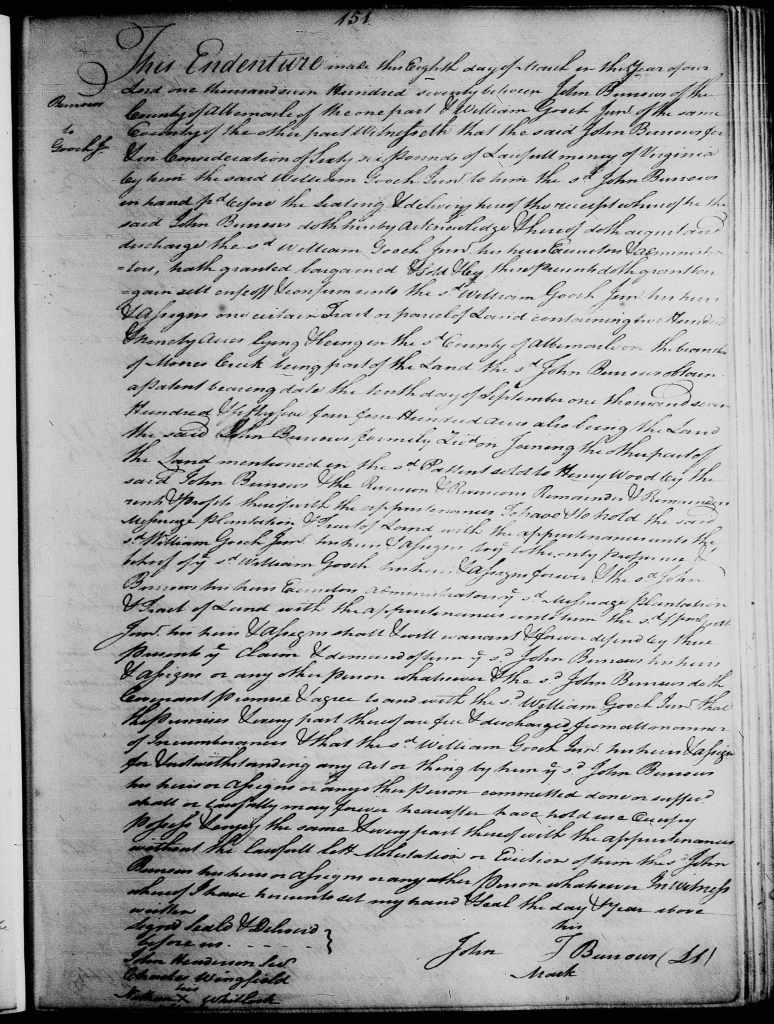 151
This Endenture made this Eighth day of March in the Year of our
Lord one thousand seven Hundred seventy between John Burrows of the
Burrows
to
Gooch Jr.
County of Albemarle of the one part & William Gooch Junr. of the same
County of the other part Witnesseth that the said John Burrows for
& in Consideration of Sixty pounds of Lawfull money of Virginia
by him the said William Gooch Junr. to him the sd. John Burrows
in hand pd. before the Sealing & delivery hereof the receipt whereof he the
said John Burrows doth hereby Acknowledge & thereof doth acquit and
discharge the sd. William Gooch Junr. his heirs Executors & administra
=tors, hath granted bargained & Sold & by these presents doth grant bar
=gain sell & confirm unto the sd. William Gooch Junr. his heirs
& Assigns one certain Tract or parcel of Land containing two Hundred
& twenty Acres lying & being in the sd. County of Albemarle on the branches
of Mores Creek being part of the Land the sd. John Burrows obtain
a patent bearing date the tenth day of September one thousand seven
Hundred & fifty five for four Hundred Acres also being the Land
the said John Burrows formerly Livd on Joining the other part of
the Land mentioned in the sd. Patent sold to Henry Wood by the
said John Burrows & the Reversion & Reversions Remainder & Remainders
rents & profits thereof with the appurtenances To have & to hold the said
Messuage plantation & Tract of Land with the appurtenances unto the
sd. William Gooch Junr. his heirs & Assigns to the only proper use &
behoof of ye sd. William Gooch his heirs & Assigns forever & the sd. John
Burrows his heirs Executors administrators ye sd. Messuage plantation
& Tract of Land with the appurtenances unto him the sd.
Junr. his heirs & Assigns shall & will warrant & forever defend by these
presents ye Claim & demand of him ye sd. John Burrows his heirs
& Assigns or any other person whatsoever & the sd. John Burrows doth
Covenant promise & agree to and with the sd. William Gooch Junr. that
the premises & every part thereof are free & discharged from all manner
of Incumberances & that the sd. William Gooch Junr. his heirs & Assigns
for & notwithstanding any Act or thing by him ye sd. John Burrows
his heirs or Assigns or any other person committed done or sufferd.
shall or lawfully may forever hereafter have hold use Occupy
possess & enjoy the same & every part thereof with the appurtenances
without the lawfull lett Molestation or Eviction of him the sd. John
Burrows his heirs or Assigns or any other person whatsoever In witness
whereof I have hereunto set my hand & seal the day & Year above
written
Signd Seald & Deliverd
before us
his
John T Burrows (LS)
Mark
John Henderson Senr.
Charles Wingfield
his
Nathan X Whitlock